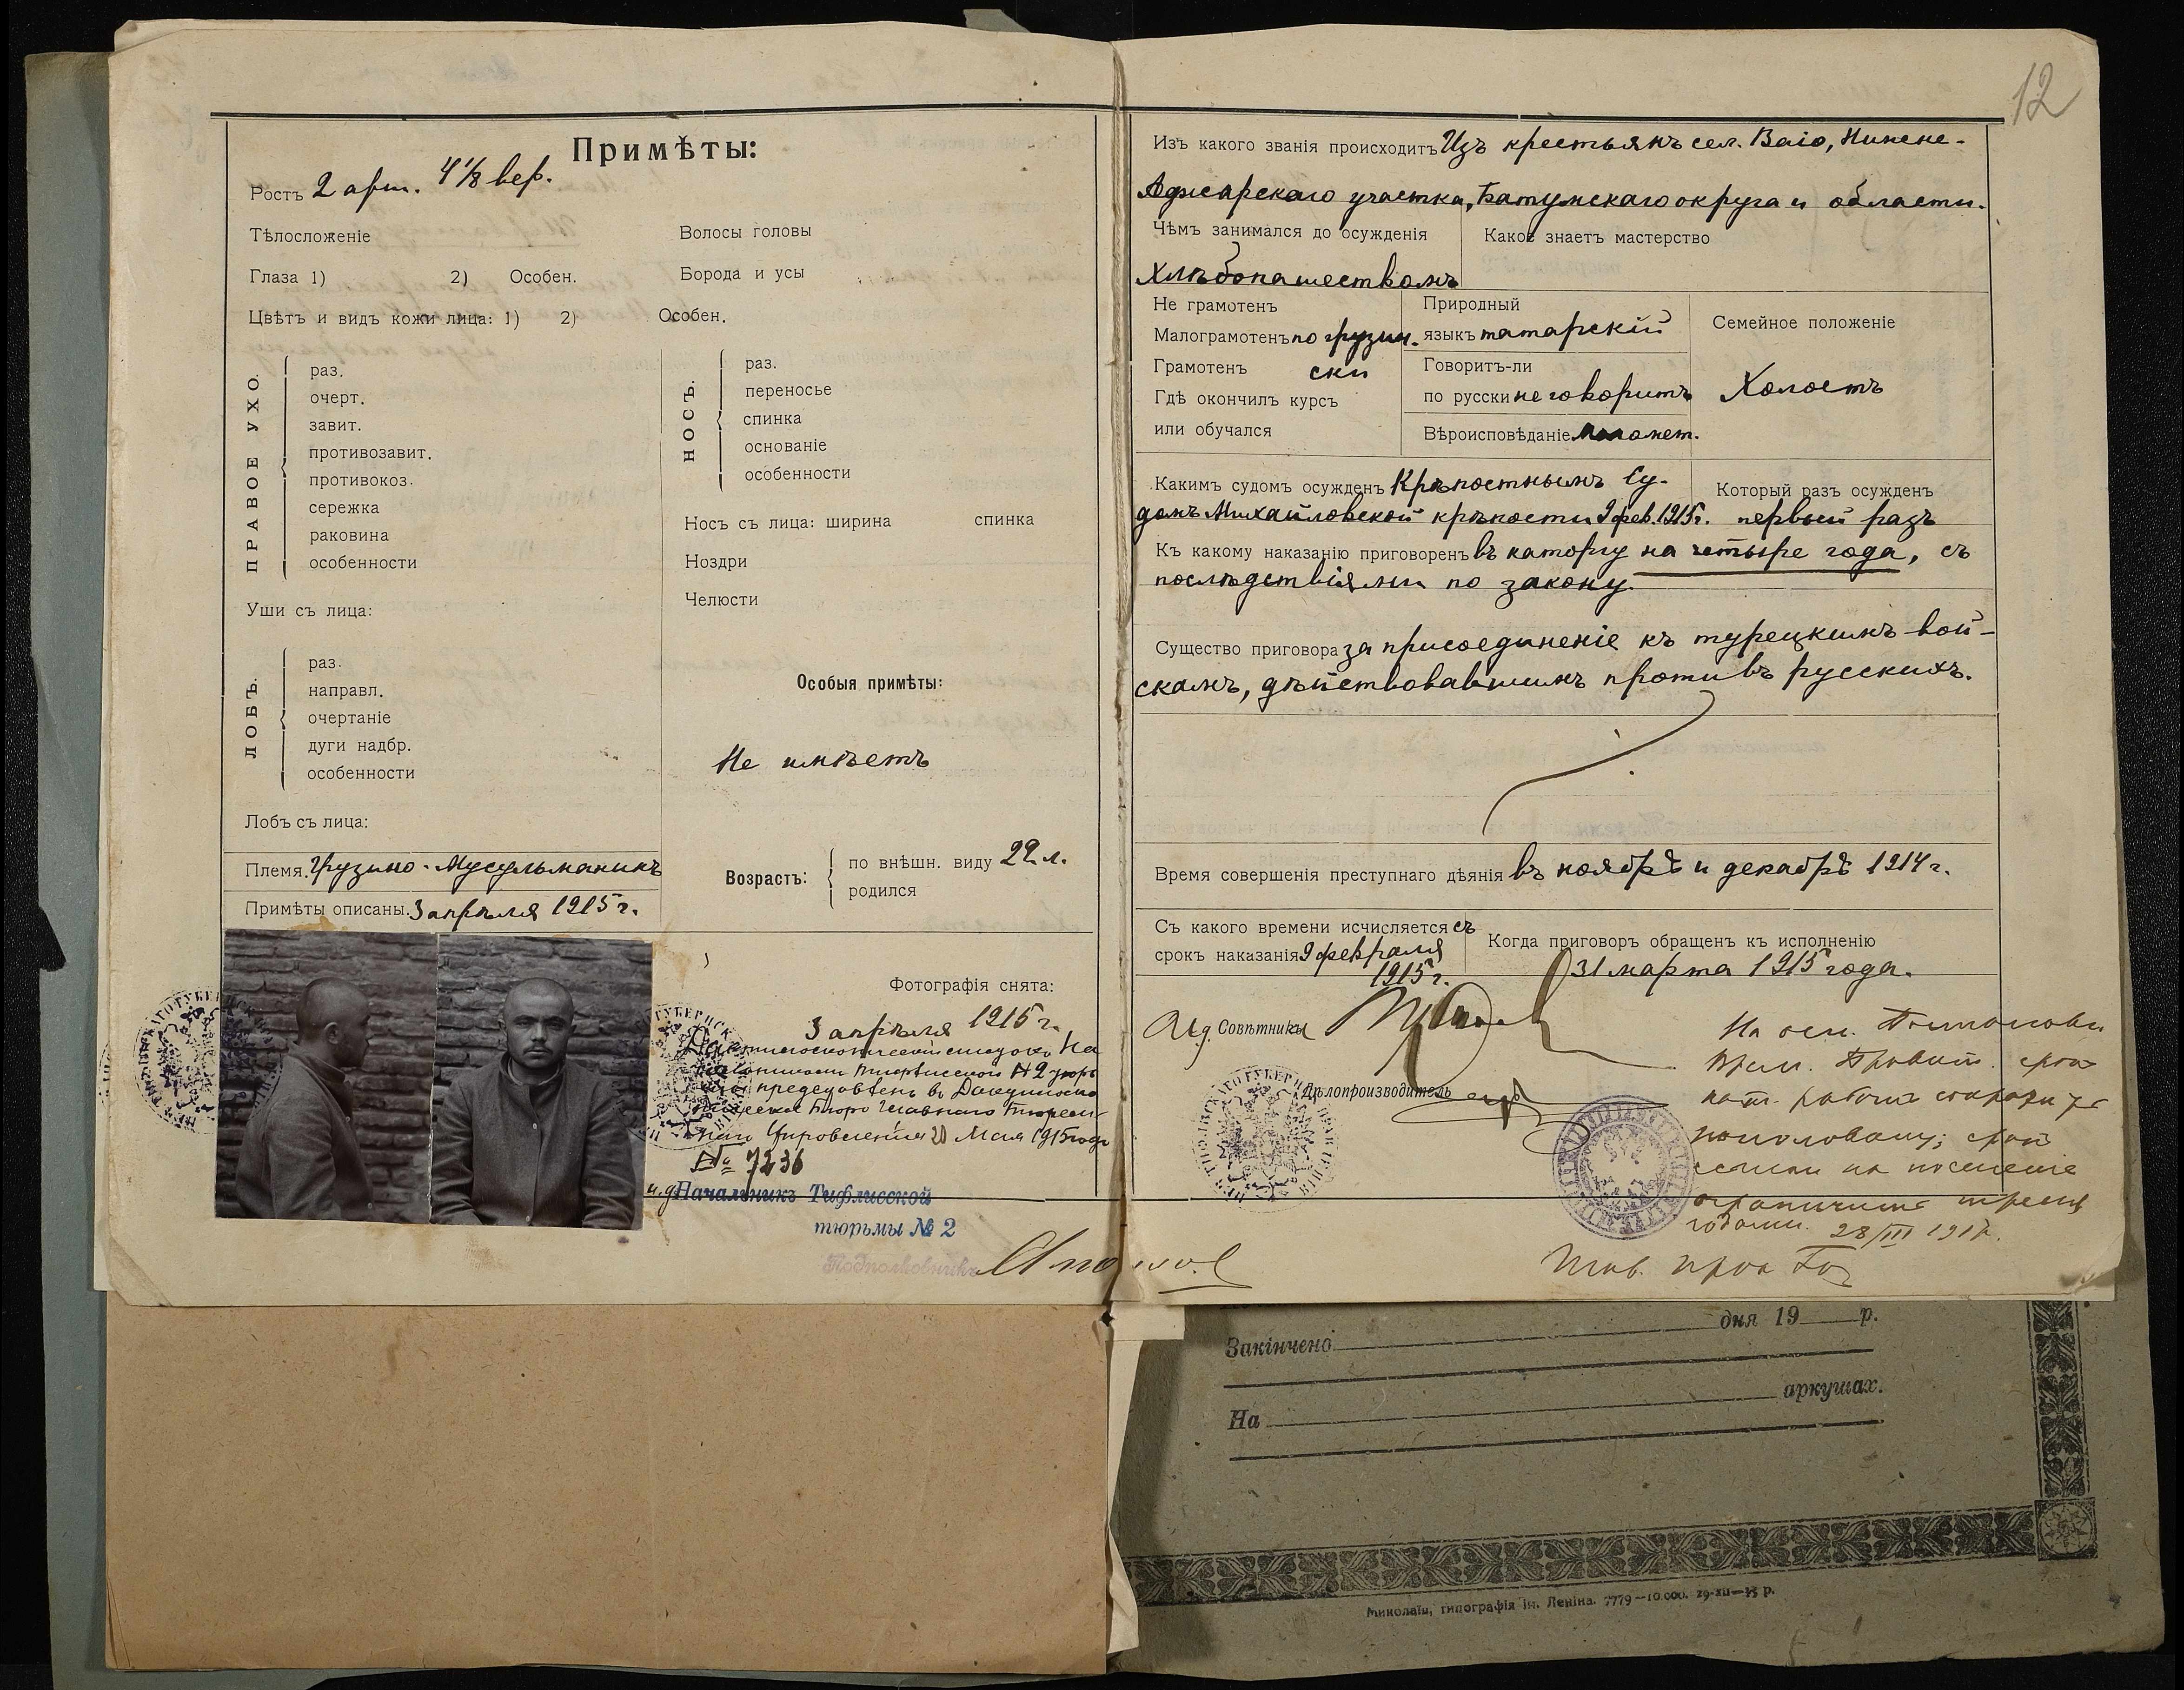 12
Примѣты:
Ростъ 2 арш. 4 1/8 вер.
Тѣлосложеніе
Волосы головы
Глаза 1) 2) Особен.
Борода и усы
Цвѣтъ и видъ кожи лица: 1) 2) Особен.
ПРАВОЕ УХО.
раз.
очерт.
завит.
противозавит.
противокоз.
сережка
раковина
особенности
НОСЪ.
раз.
переносье
спинка
основаніе
особенности
Носъ съ лица: ширина спинка
Ноздри
Челюсти
Уши съ лица:
ЛОБЪ.
раз.
направл.
очертаніе
дуги надбр.
особенности
Особыя примѣты:
Не имѣетъ
Лобъ съ лица:
Племя. Грузино-Мусульманинъ
Примѣты описаны. 3 апрѣля 1915 г.
Возрастъ:
по внѣшн. виду 22 л.
родился
Фотографія снята:
3 апрѣля 1915 г.
Управленія 20 Мая 1915 года
№ 7236
и.д. Начальникъ Тифлисской
тюрьмы № 2
Подполковникъ
Изъ какого званія происходитъ Изъ крестьянъ сел. Ваіо, Нижне-
Аджарскаго участка, Батумскаго округа и области.
Чѣмъ занимался до осужденія
Какое знаетъ мастерство
Хлѣбопашествомъ
Не грамотенъ
Малограмотенъ по грузин-
Грамотенъ ски
Гдѣ окончилъ курсъ
или обучался
Природный
языкъ татарскій
Говоритъ-ли
по русски не говоритъ
Вѣроисповѣданіе Магомет.
Семейное положеніе
Холостъ
Какимъ судомъ осужденъ Крѣпостнымъ Су-
домъ Михайловской крѣпости 9 фев. 1915 г.
Который разъ осужденъ
первый разъ
Къ какому наказанію приговоренъ въ каторгу на четыре года, съ
послѣдствіями по закону.
Существо приговора за присоединеніе къ турецкимъ вой-
скамъ, дѣйствовавшимъ противъ русскихъ.
Время совершенія преступнаго дѣянія въ ноябрѣ и декабрѣ 1914 г.
Съ какого времени исчисляется съ
срокъ наказанія 9 февраля
1915 г.
Когда приговоръ обращенъ къ исполненію
31 марта 1915 года.
И.д. Совѣтника
Дѣлопроизводитель
На осн.
Врем. Правит. срок
кат. работъ сократить
пополовину; срок
ссылки на поселеніе
ограничить тремя
годами. 28/III 1917 г.
дня 19 р.
Закінчено
аркушах.
На
Миколаїв, типографія ім. Леніна. 7779—10.000. 29-XII—